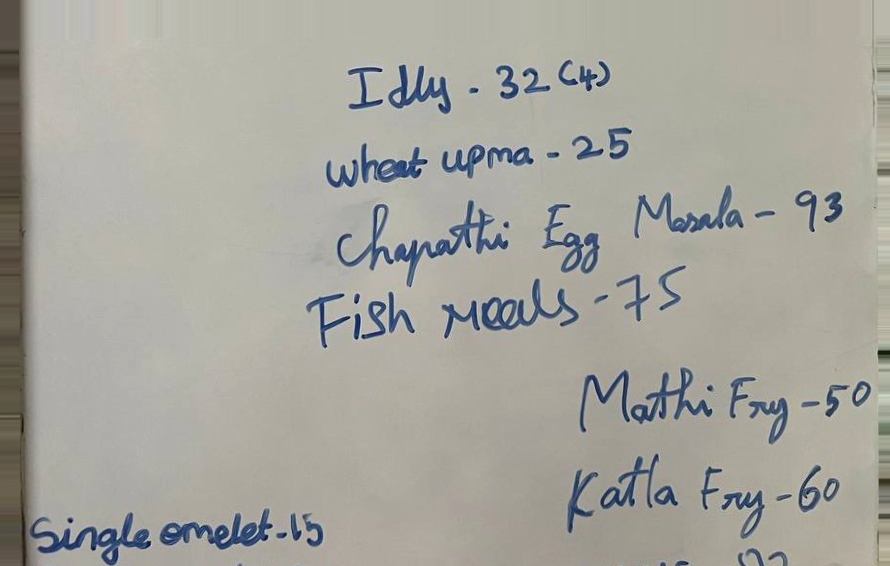 Idly - 32 (4)
wheat upma - 25
Chapathi Egg Masala - 93
Fish meals - 75
Mathi Fry - 50
Katla Fry - 60
Single omelet - 15